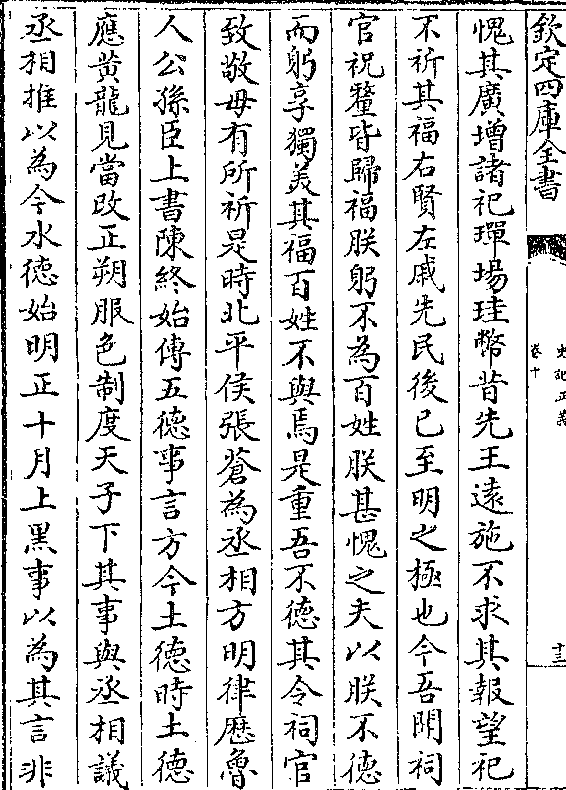 欽定四庫全書
史記正義
卷十
十三
愧其廣增諸祀墠場珪幣昔先王遠施不求其報望祀
不祈其福右賢左戚先民後已至明之極也今吾聞祠
官祝釐皆歸福朕躬不為百姓朕甚愧之夫以朕不德
而躬享獨美其福百姓不與焉是重吾不德其令祠官
致敬毋有所祈是時北平侯張蒼為丞相方明律歴魯
人公孫臣上書陳終始傳五德事言方今土德時土德
應黄龍見當改正朔服色制度天子下其事與丞相議
丞相推以為今水德始明正十月上黑事以為其言非